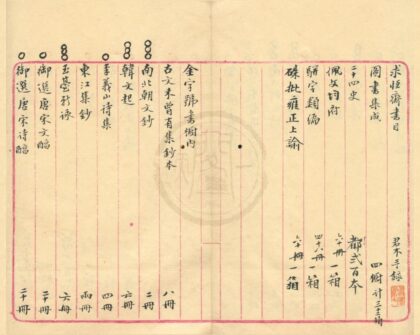 求恒齋書目 君木手錄
圖書集成 四櫥計三十二箱
二十四史 都弍百本
佩文韵府 六十冊一箱
駢字類編 四十八冊一箱
硃批雍正上諭 六十冊一箱
金字號書櫥內
古文未曾有集鈔本 八冊
南北朝文鈔 二冊
韓文起 六冊
李義山詩集 四冊
東江集鈔 兩冊
玉臺新詠 六冊
御選唐宋文醇 二十冊
御選唐宋詩醇 二十冊